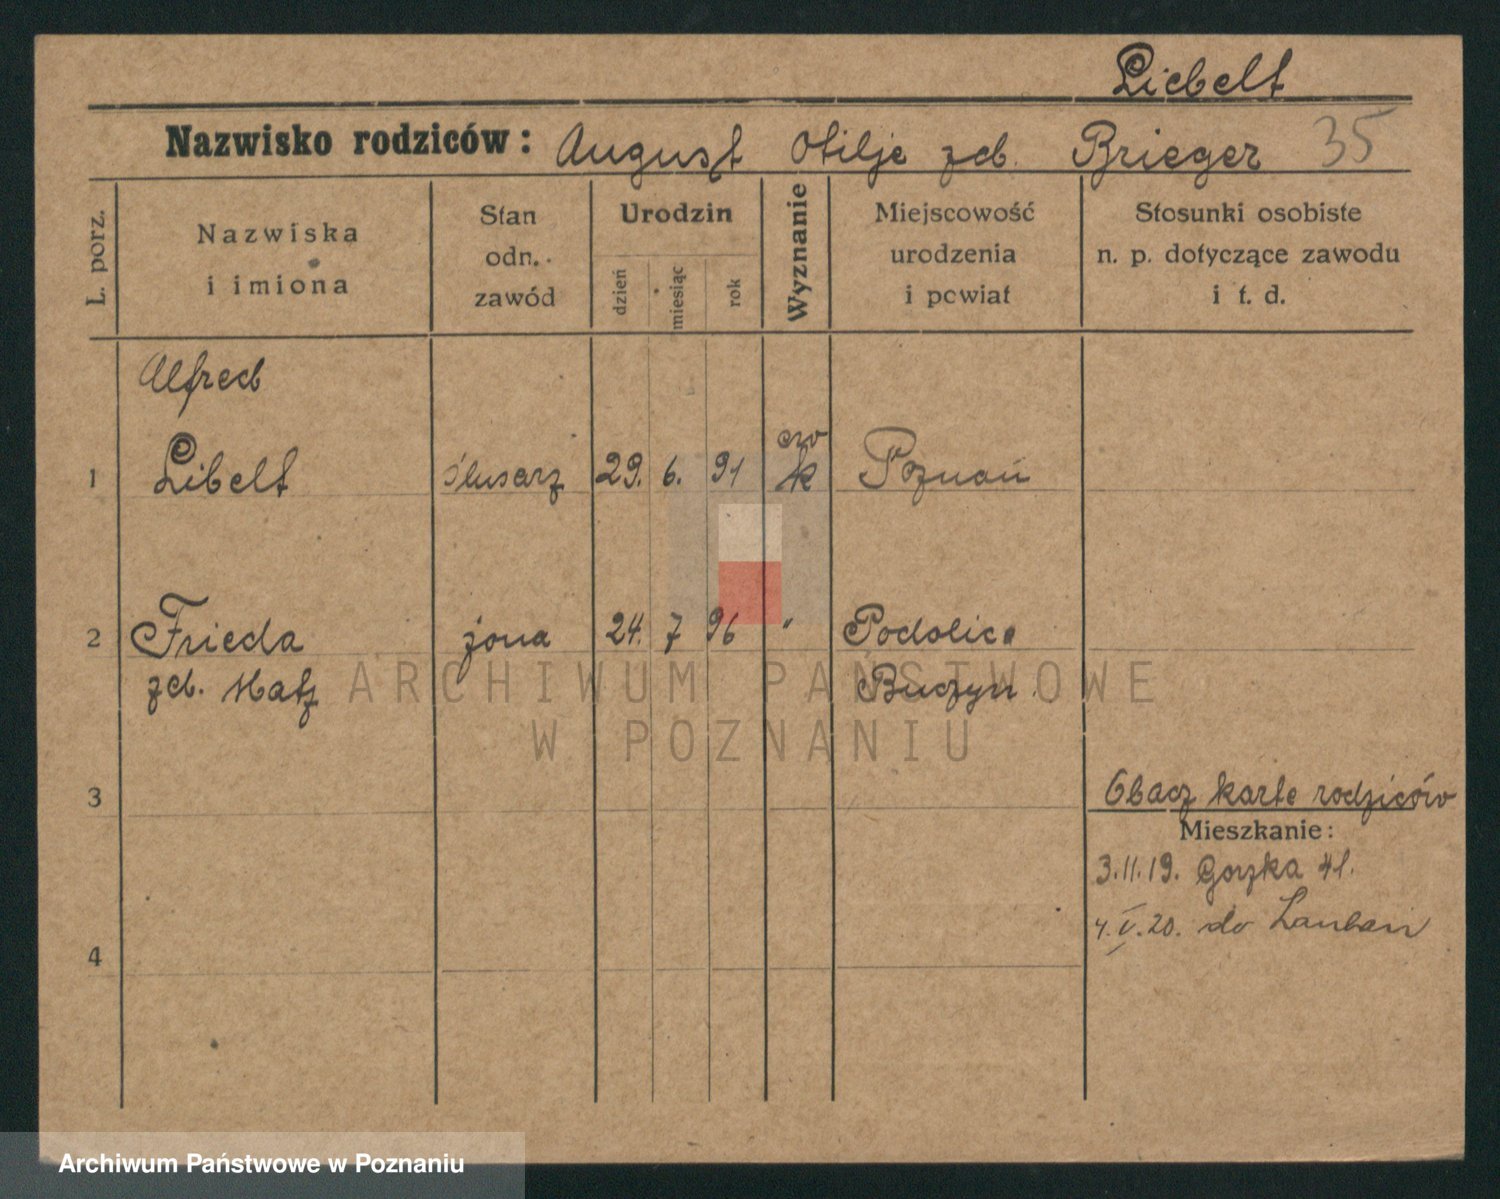 Liebelt
Nazwisko rodziców: August Otilje zd. Brieger 35
L. porz.
Nazwiska
i imiona
Stan
odn.
zawód
Urodzin
dzień
miesiąc
rok
Wyznanie
Miejscowość
urodzenia
i powiat
Stosunki osobiste
n. p. dotyczące zawodu
i t. d.
Alfred
1 Libelt ślusarz 29. 6. 91 Poznań
2 Frieda żona 24. 7 96 " Podolice
zd. Matz Budzyn
3
Obacz karte rodziców
Mieszkanie:
3.11.19. Gorzka 41.
4
4.V.20. do Lauban
ARCHIWUM PAŃSTWOWE
W POZNANIU
Archiwum Państwowe w Poznaniu